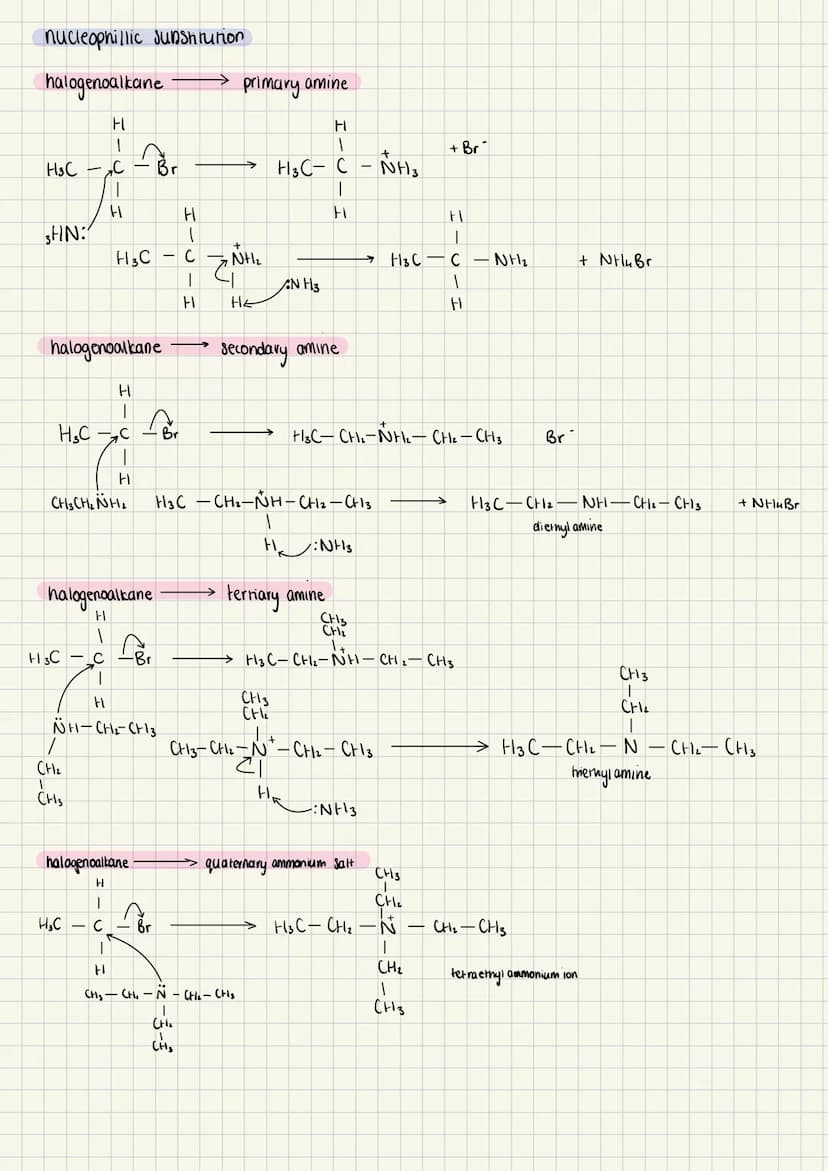 nucleophillic substitution
halogenoalkane ⟶ primary amine
H H
H₃C — C — Br ⟶ H₃C — C — N⁺H₃ + Br⁻
H H
₃HN:
H H
H₃C — C — N⁺H₂ ⟶ H₃C — C — NH₂ + NH₄Br
H H :NH₃ H
halogenoalkane ⟶ secondary amine
H
H₃C — C — Br ⟶ H₃C — CH₂ — N⁺H₂ — CH₂ — CH₃ Br⁻
H
CH₃CH₂N̈H₂ H₃C — CH₂ — N⁺H — CH₂ — CH₃ ⟶ H₃C — CH₂ — NH — CH₂ — CH₃ + NH₄Br
diethylamine
H :NH₃
halogenoalkane ⟶ tertiary amine
H CH₃
CH₂
H₃C — C — Br ⟶ H₃C — CH₂ — N⁺H — CH₂ — CH₃
H CH₃ CH₃
CH₂ CH₂
N̈H — CH₂ — CH₃
CH₃ — CH₂ — N⁺ — CH₂ — CH₃ ⟶ H₃C — CH₂ — N — CH₂ — CH₃
CH₂ triethylamine
CH₃ H :NH₃
halogenoalkane ⟶ quaternary ammonium salt
H CH₃
CH₂
H₃C — C — Br ⟶ H₃C — CH₂ — N⁺ — CH₂ — CH₃
H CH₂ tetraethyl ammonium ion
CH₃ — CH₂ — N̈ — CH₂ — CH₃
CH₃
CH₂
CH₃